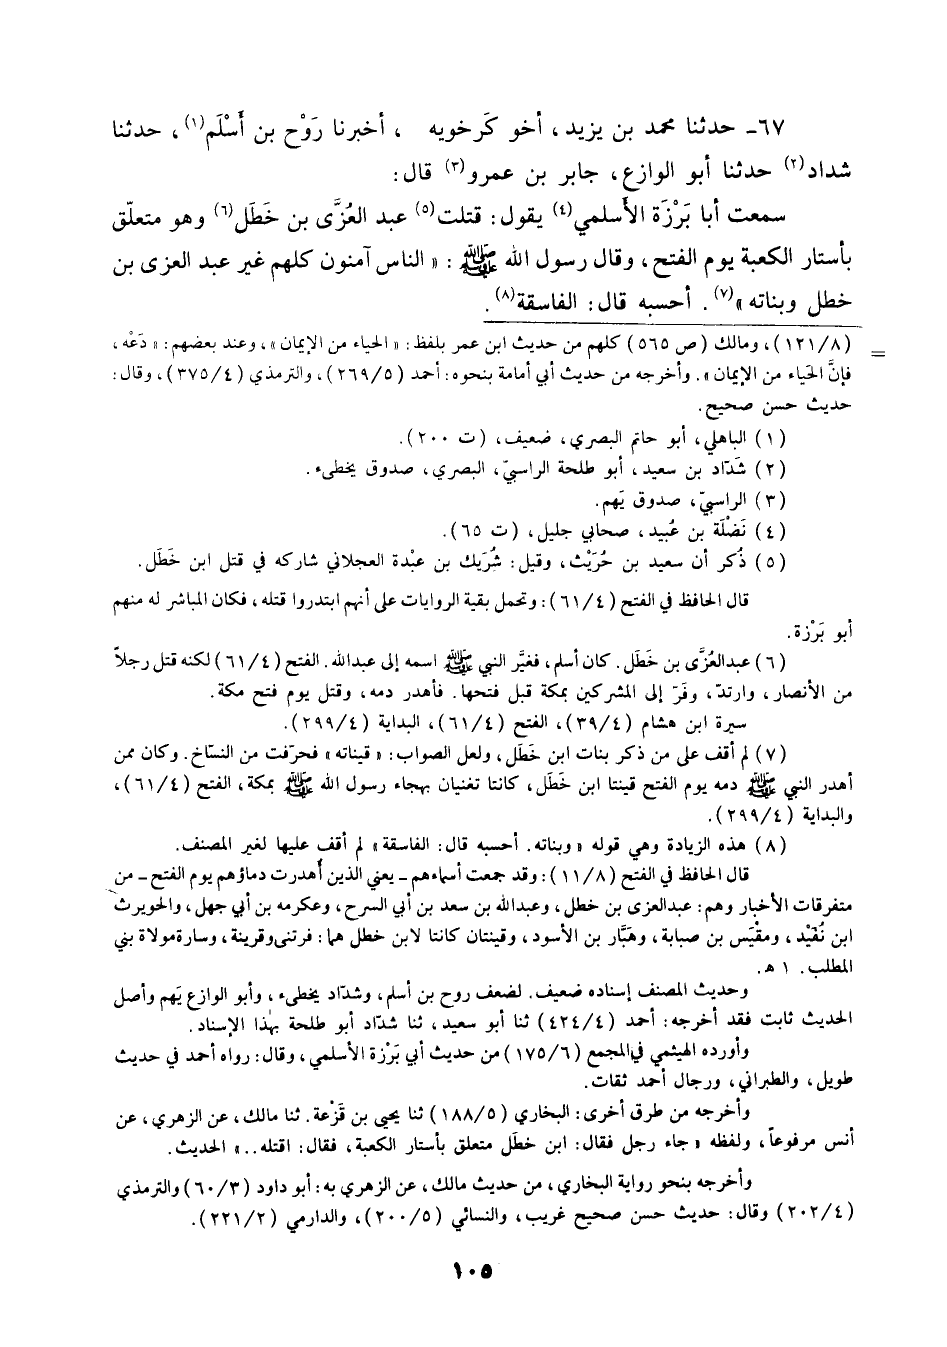 ٦٧ـ حدثنا محمد بن يزيد، أخو كَرخويه ، أخبرنا رَوْح بن أَسْلَم(١)، حدثنا
شداد(٢) حدثنا أبو الوازع، جابر بن عمرو(٣) قال:
سمعت أبا بَرْزَة الأَسلمي(٤) يقول: قتلت(٥) عبد العُزَّى بن خَطَل(٦) وهو متعلّق
بأستار الكعبة يوم الفتح، وقال رسول الله ﷺ : «الناس آمنون كلهم غير عبد العزى بن
خطل وبناته»(٧). أحسبه قال: الفاسقة(٨).
= (١٢١/٨)، ومالك (ص ٥٦٥) كلهم من حديث ابن عمر بلفظ: «الحياء من الإيمان»، وعند بعضهم: «دَعْه،
فإنَّ الحَياء من الإيمان». وأخرجه من حديث أبي أمامة بنحوه: أحمد (٢٦٩/٥)، والترمذي (٣٧٥/٤)، وقال:
حديث حسن صحيح.
(١) الباهلي، أبو حاتم البصري، ضعيف، (ت ٢٠٠).
(٢) شَدّاد بن سعيد، أبو طلحة الراسبيّ، البصري، صدوق يخطىء.
(٣) الراسبيّ، صدوق يَهم.
(٤) نَضْلَة بن عُبيد، صحابي جليل، (ت ٦٥).
(٥) ذُكر أن سعيد بن حُرَيْث، وقيل: شُرَيك بن عبْدة العجلاني شاركه في قتل ابن خَطَل.
قال الحافظ في الفتح (٦١/٤): وتحمل بقية الروايات على أنهم ابتدروا قتله، فكان المباشر له منهم
أبو بَرْزة.
(٦) عبدالعُزَّى بن خَطَل. كان أسلم، فغيَّر النبي ﷺ اسمه إلى عبدالله. الفتح (٦١/٤) لكنه قتل رجلاً
من الأنصار، وارتدّ، وفَرّ إلى المشركين بمكة قبل فتحها. فأهدر دمه، وقتل يوم فتح مكة.
سيرة ابن هشام (٣٩/٤)، الفتح (٦١/٤)، البداية (٢٩٩/٤).
(٧) لم أقف على من ذكر بنات ابن خَطَل، ولعل الصواب: «قيناته» فحرّفت من النسّاخ. وكان ممن
أهدر النبي ﷺ دمه يوم الفتح قينتا ابن خَطَل، كانتا تغنيان بهجاء رسول الله ﷺ بمكة، الفتح (٦١/٤)،
والبداية (٢٩٩/٤).
(٨) هذه الزيادة وهي قوله «وبناته. أحسبه قال: الفاسقة» لم أقف عليها لغير المصنف.
قال الحافظ في الفتح (١١/٨): وقد جمعت أسماءهم ـ يعني الذين أُهدرت دماؤهم يوم الفتح ـ من
متفرقات الأخبار وهم: عبدالعزى بن خطل، وعبدالله بن سعد بن أبي السرح، وعكرمه بن أبي جهل، والحويرث
ابن نُقَيْد، ومقْيَس بن صبابة، وهَبَّار بن الأسود، وقينتان كانتا لابن خطل هما: فرتنى وقرينة، وسارة مولاة بني
المطلب. ا هـ.
وحديث المصنف إسناده ضعيف. لضعف روح بن أسلم، وشدّاد يخطىء، وأبو الوازع يَهم وأصل
الحديث ثابت فقد أخرجه: أحمد (٤٢٤/٤) ثنا أبو سعيد، ثنا شدّاد أبو طلحة بهٰذا الإسناد.
وأورده الهيثمي في المجمع (١٧٥/٦) من حديث أبي بَرْزة الأسلمي، وقال: رواه أحمد في حديث
طويل، والطبراني، ورجال أحمد ثقات.
وأخرجه من طرق أخرى: البخاري (١٨٨/٥) ثنا يحيى بن قَزْعة. ثنا مالك، عن الزهري، عن
أنس مرفوعاً، ولفظه «جاء رجل فقال: ابن خطَل متعلق بأستار الكعبة، فقال: اقتله..» الحديث.
وأخرجه بنحو رواية البخاري، من حديث مالك، عن الزهري به: أبو داود (٦٠/٣) والترمذي
(٢٠٢/٤) وقال: حديث حسن صحيح غريب، والنسائي (٢٠٠/٥)، والدارمي (٢٢١/٢).
١٠٥